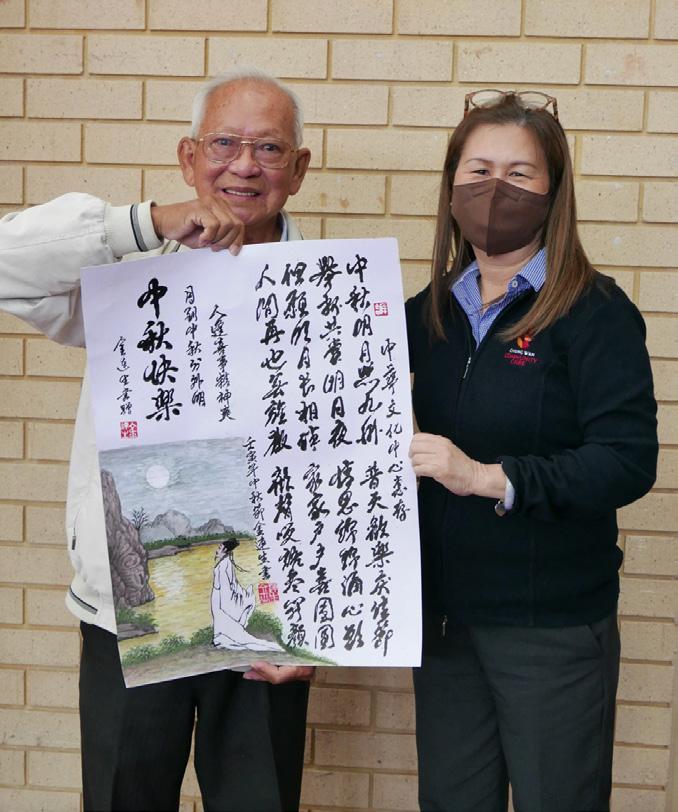 中華文化中心惠存
中秋明月照九州 普天歡樂慶佳節
舉杯共賞明月夜 情思綿綿涌心頭
但願明月長相 家家戶戶喜團圓
人間再也無離散 歡聲笑語盡開顏
壬寅年中秋節金 生書
人逢喜事精神爽
月到中秋分外明
中秋快樂
金 生書贈
CHUNG WAH
COMMUNITY
CARE